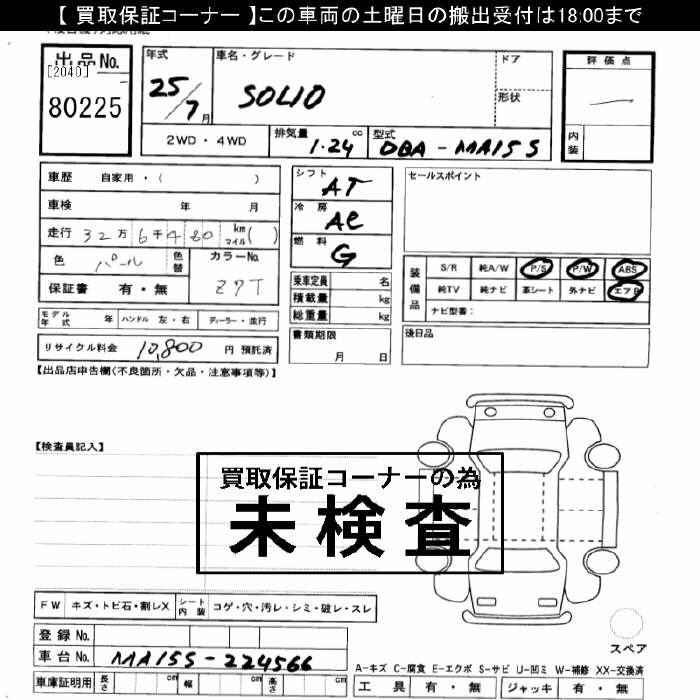 【 買取保証コーナー 】この車両の土曜日の搬出受付は18:00まで
出品No.
[2040]
80225
年式
25/7月
車名・グレード
SOLIO
ドア
形状
評価点
内装
2WD・4WD
排気量 1.24 cc
型式 DBA-MA15S
車歴 自家用・( )
車検 年 月
走行 32万6千480 km マイル( )
色 パール 色替
カラーNo. Z7T
保証書 有・無
シフト AT
冷房 AC
燃料 G
乗車定員 名
積載量 kg
総重量 kg
セールスポイント
装備品
S/R 純A/W P/S P/W ABS
純TV 純ナビ 革シート 外ナビ エアB
ナビ型番:
モデル年式 年 ハンドル 左・右 ディーラー・並行
リサイクル料金 10,800 円 預託済
書類期限
月 日
後日品
【出品店申告欄(不良箇所・欠品・注意事項等)】
【検査員記入】
買取保証コーナーの為
未検査
FW キズ・トビ石・割レX シート内装 コゲ・穴・汚レ・シミ・破レ・スレ
登録No.
車台No. MA15S-224566
スペア
A-キズ C-腐食 E-エクボ S-サビ U-凹ミ W-補修 XX-交換済
車庫証明用 長さ cm 幅 cm 高さ cm
工具 有・無 ジャッキ 有・無